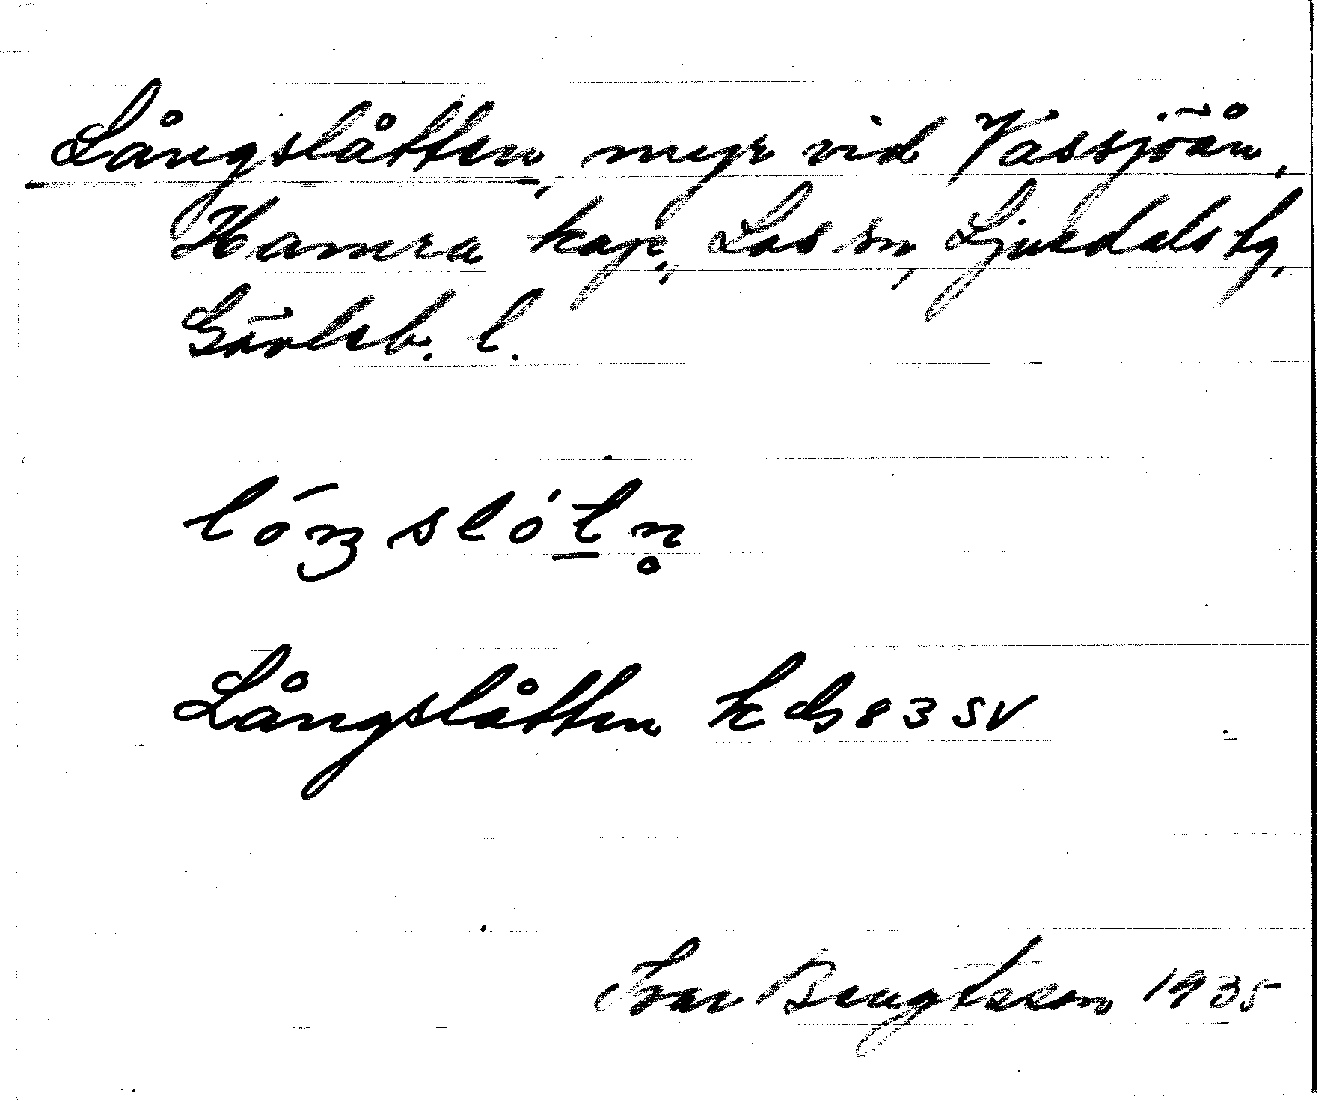 Långslåtten, myr vid Vässjöån,
Hamra kap., Los sn, Ljusdals tg,
Gävleb. l.
lóŋslót̲n̥
Långslåtten k db 83 SV
Ivar Bengtsson 1935